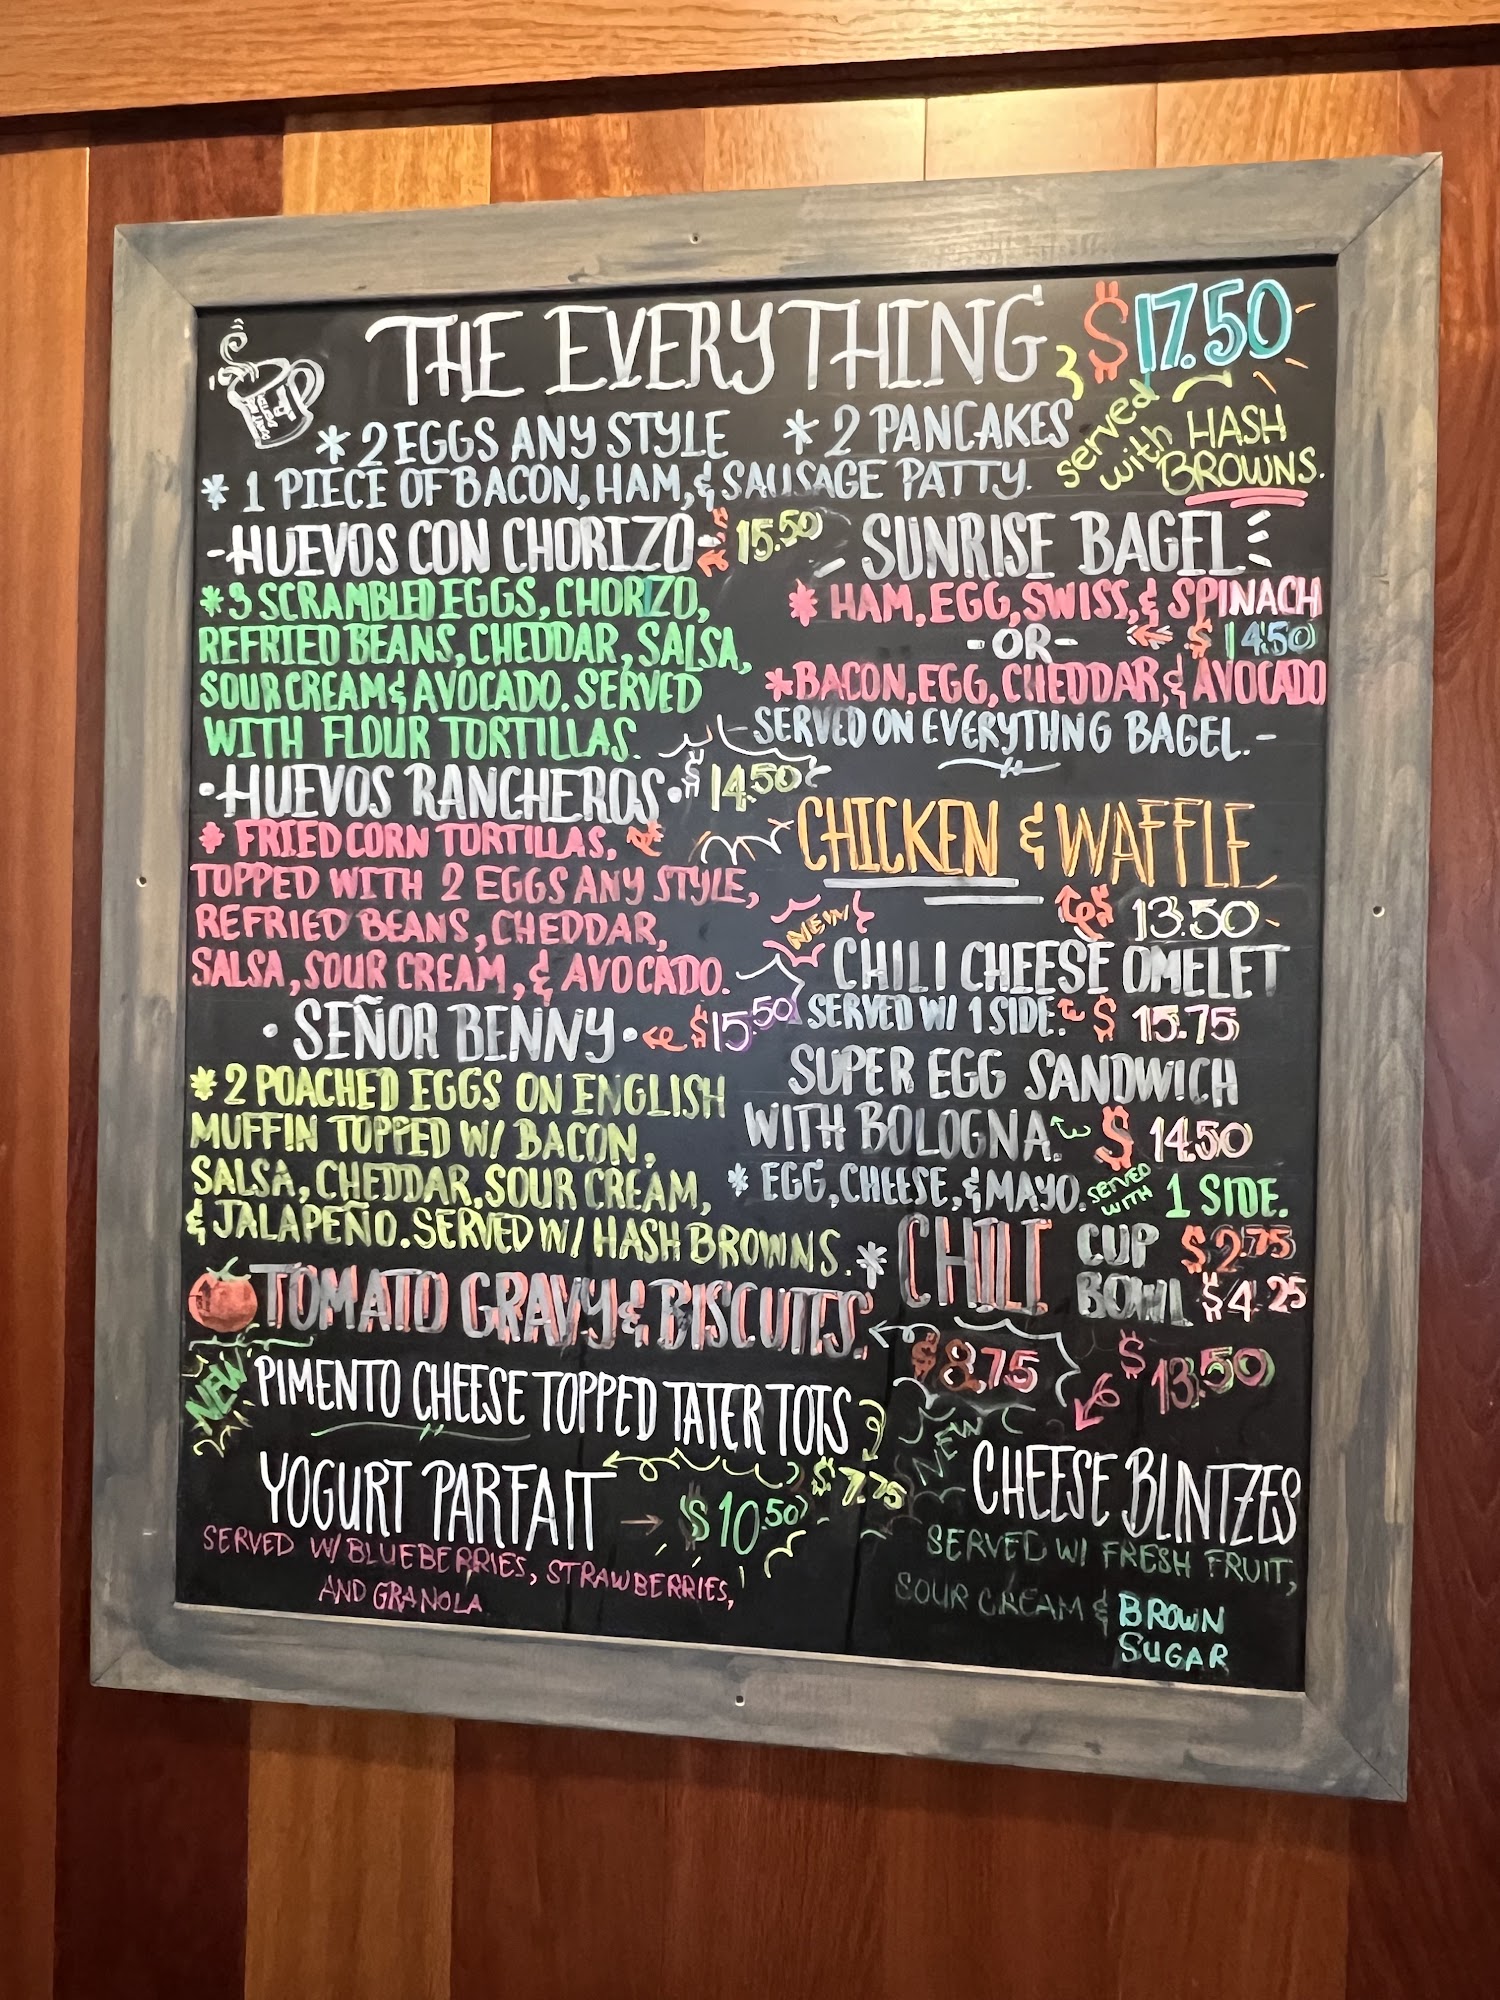 THE EVERYTHING $17.50
* 2 EGGS ANY STYLE * 2 PANCAKES
* 1 PIECE OF BACON, HAM, & SAUSAGE PATTY.
served with HASH
BROWNS.
-HUEVOS CON CHORIZO 15.50
*3 SCRAMBLED EGGS, CHORIZO,
REFRIED BEANS, CHEDDAR, SALSA,
SOUR CREAM & AVOCADO. SERVED
WITH FLOUR TORTILLAS.
•HUEVOS RANCHEROS• $14.50
* FRIED CORN TORTILLAS,
TOPPED WITH 2 EGGS ANY STYLE,
REFRIED BEANS, CHEDDAR,
SALSA, SOUR CREAM, & AVOCADO.
• SEÑOR BENNY • $15.50
* 2 POACHED EGGS ON ENGLISH
MUFFIN TOPPED W/ BACON,
SALSA, CHEDDAR, SOUR CREAM,
& JALAPEÑO. SERVED W/ HASH BROWNS.
TOMATO GRAVY & BISCUITS. $8.75
NEW PIMENTO CHEESE TOPPED TATER TOTS
$7.75
YOGURT PARFAIT $10.50
SERVED W/ BLUEBERRIES, STRAWBERRIES,
AND GRANOLA
SUNRISE BAGEL
* HAM, EGG, SWISS, & SPINACH
-OR- $14.50
*BACON, EGG, CHEDDAR, & AVOCADO
-SERVED ON EVERYTHNG BAGEL.-
CHICKEN & WAFFLE
13.50
NEW CHILI CHEESE OMELET
SERVED W/ 1 SIDE. $15.75
SUPER EGG SANDWICH
WITH BOLOGNA. $14.50
* EGG, CHEESE, & MAYO. SERVED WITH 1 SIDE.
* CHILI CUP $2.75
BOWL $4.25
$13.50
NEW CHEESE BLINTZES
SERVED W/ FRESH FRUIT,
SOUR CREAM & BROWN
SUGAR